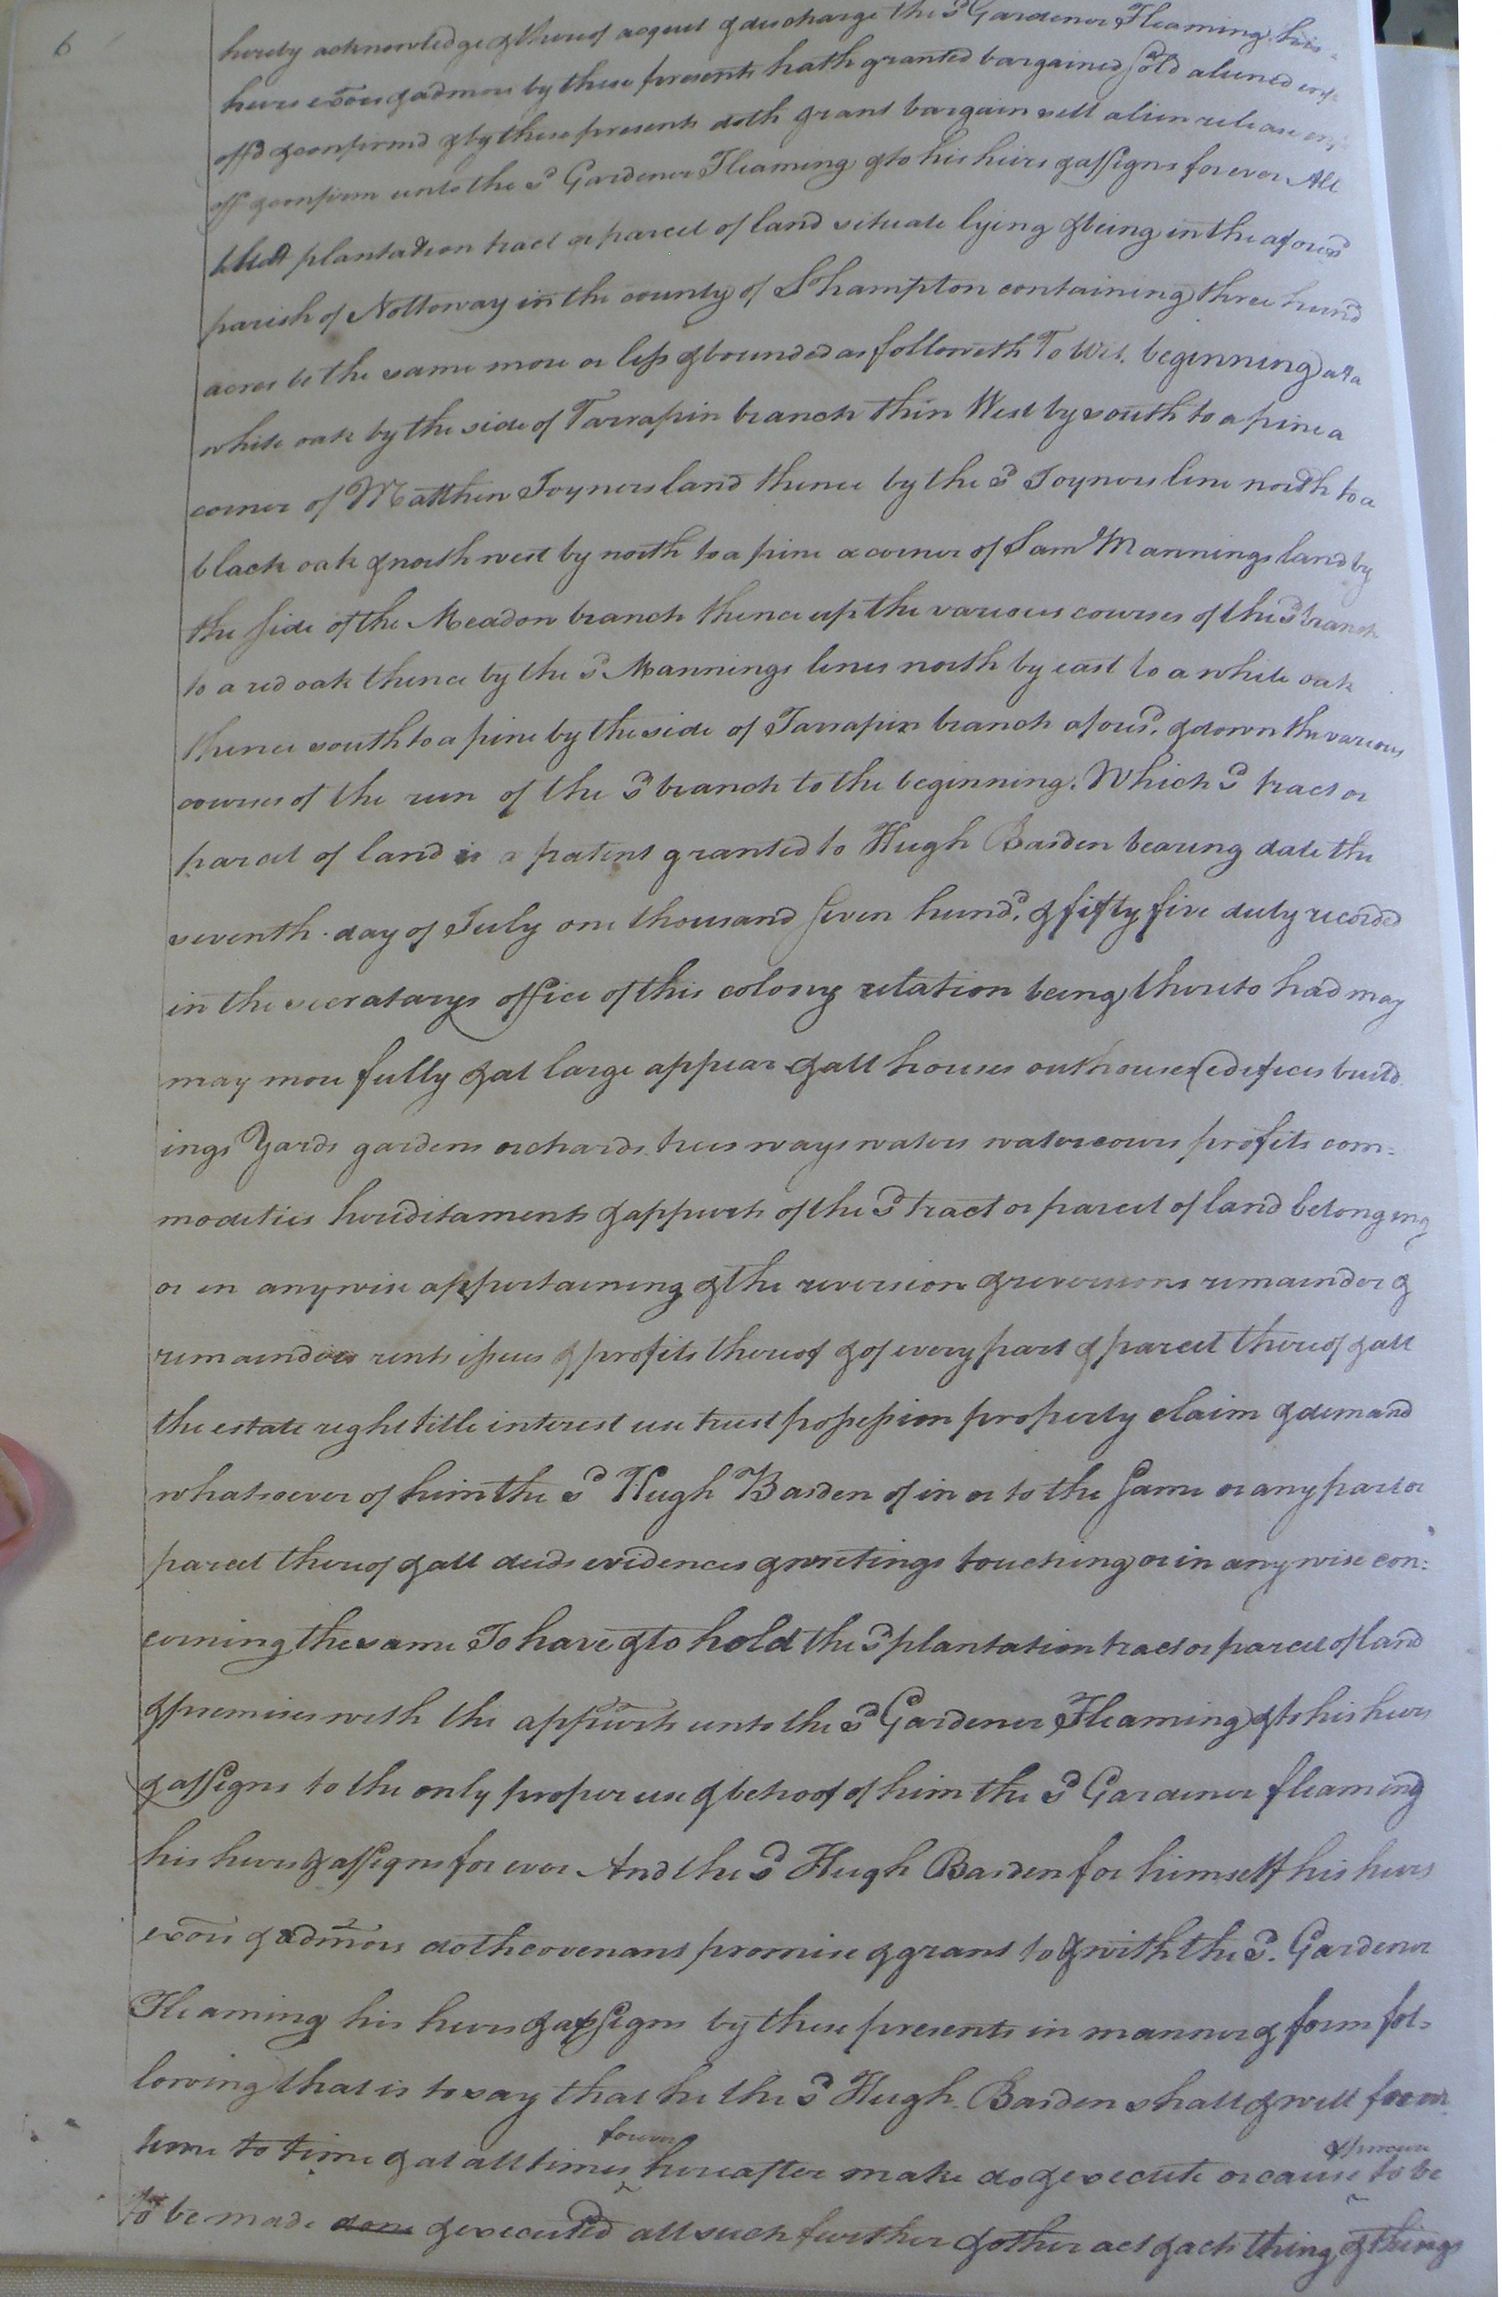 6
hereby acknowledge & thereof acquit & discharge the sd Gardener Fleaming his
heirs exors & admors by these presents hath granted bargained sold aliened enfe
off'd & confirmd & by these presents doth grant bargain sell alien release enfe
off & confirm unto the sd Gardener Fleaming & to his heirs & assigns for ever All
that plantation tract or parcel of land situate lying & being in the aforesd
parish of Nottoway in the county of So hampton containing three hund
acres be the same more or less & bounded as followeth To Wit. beginning at a
white oak by the side of Tarrapin branch then West by south to a pine a
corner of Matthew Joyners land thence by the sd Joyners line north to a
black oak & north west by north to a pine a corner of Saml Mannings land by
the side of the Meadow branch thence up the various courses of the sd branch
to a red oak thence by the sd Mannings lines north by east to a white oak
thence south to a pine by the side of Tarrapin branch aforesd. & down the various
courses of the run of the sd branch to the beginning. Which sd tract or
parcel of land is a patent granted to Hugh Barden bearing date the
seventh day of July one thousand seven hundd. & fifty five duly recorded
in the secratarys office of this colony relation being thereto had may
may more fully & at large appear & all houses outhouses edefices build
ings Yards gardens orchards trees ways waters watercours profits com=
modities heriditaments & appurts of the sd tract or parcel of land belonging
or in anywise appertaining & the reversion & reversions remainder &
remainders rents issues & profits thereof & of every part & parcel thereof & all
the estate right title interest use trust possession property claim & demand
whatsoever of him the sd Hugh Barden of in or to the same or any part or
parcel thereof & all deeds evidences & writings touching or in any wise con=
cerning the same To have & to hold the sd plantation tract or parcel of land
& premises with the appurts unto the sd Gardener Fleaming & to his heirs
& assigns to the only proper use & behoof of him the sd Gardener fleaming
his heirs & assigns for ever And the sd Hugh Barden for himself his heirs
exors & admors doth covenant promise & grant to & with the sd. Gardener
Fleaming his heirs & assigns by these presents in manner & form fol=
lowing that is to say that he the sd Hugh Barden shall & will from
time to time & at all times forever hereafter make do & execute or cause & procure to be
to be made done & executed all such further & other act & acts thing & things